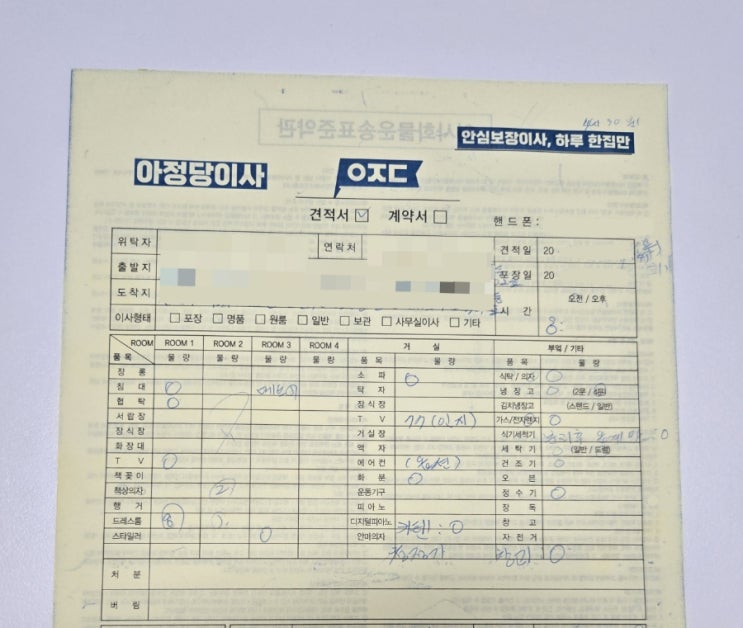 이사화물운송표준약관
안심보장이사, 하루 한집만
아정당이사
ㅇㅈㄷ
견적서 ☑ 계약서 □ 핸드폰 :
위탁자 연락처 견적일 20
출발지 포장일 20
도착지 오전 / 오후
이사형태 □ 포장 □ 명품 □ 원룸 □ 일반 □ 보관 □ 사무실이사 □ 기타 시 간 8:
ROOM ROOM 1 ROOM 2 ROOM 3 ROOM 4 거 실 부엌 / 기타
품목 물 량 물 량 물 량 물 량 품 목 물 량 품 목 물 량
장 롱 소 파 O 식탁 / 의자 O
침 대 O 탁 자 냉 장 고 O (2문 / 4문)
협 탁 O 장 식 장 김치냉장고 (스탠드 / 일반)
서 랍 장 T V 77 가스/전자렌지 O
장 식 장 거 실 장 식기세척기
화 장 대 액 자 세 탁 기 O (일반 / 드럼)
T V O 에 어 컨 건 조 기 O
책 꽂 이 화 분 O 오 븐
책상의자 2 운동기구 정 수 기 O
행 거 피 아 노 장 독
드레스룸 8 디지털피아노 커텐 : O 창 고
스타일러 O 안마의자 자 전 거
처 분
버 림